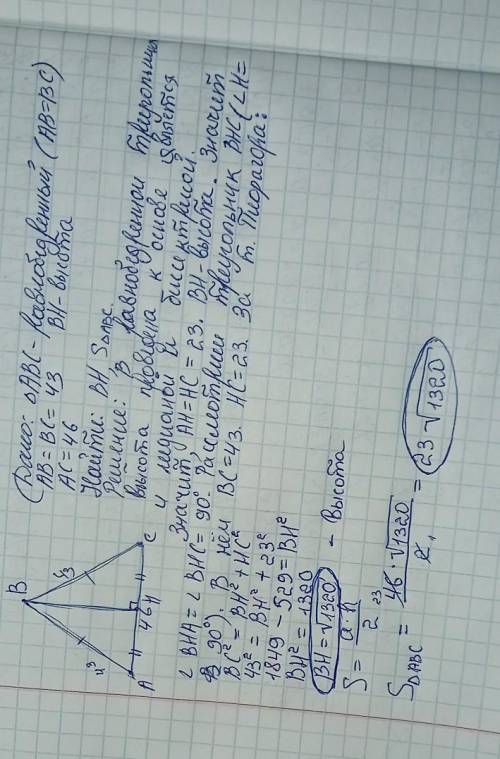 Дано: △ABC - равнобедренный (AB=BC)
AB = BC = 43 BH - высота
AC = 46
Найти: BH S△ABC.
Решение: В равнобедренном треугольнике
высота проведена к основе является
и медианой и биссектрисой.
Значит, AH=HC = 23. BH - высота. Значит
∠BHA = ∠BHC = 90°. Рассмотрим треугольник BHC (∠H=
90°). В нём BC=43. HC=23. За т. Пиорагора:
BC² = BH² + HC²
43² = BH² + 23²
1849 - 529 = BH²
BH² = 1320
BH = √1320 - Высота
S = a·h / 2
S△ABC = 46 23 · √1320 / 2 1 = 23√1320
B
43
43
A
46
H
C